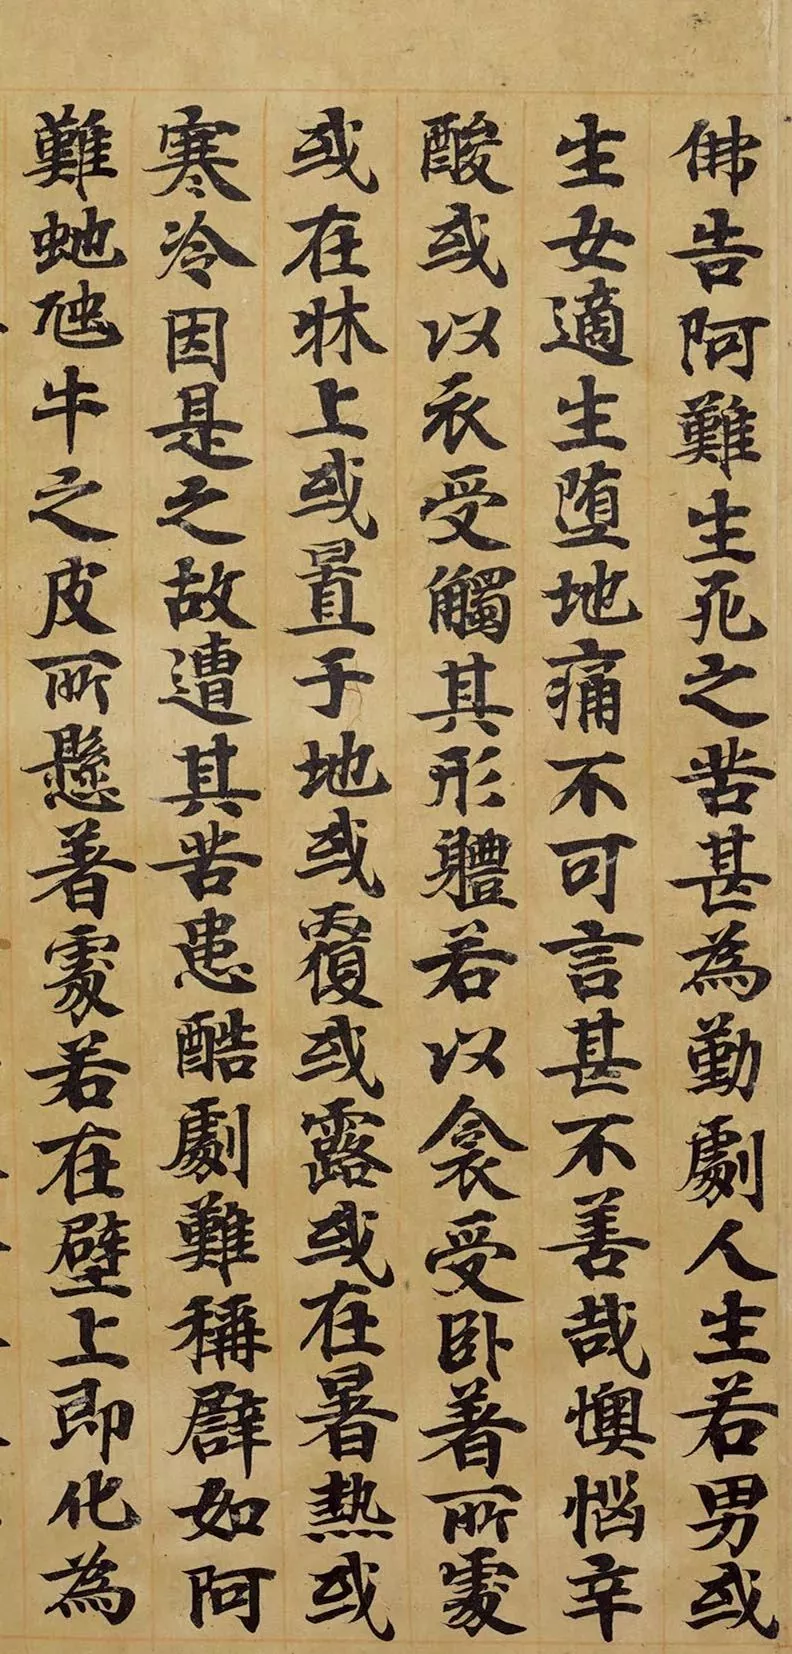 佛告阿難生死之苦甚為勤劇人生若男或
生女適生墮地痛不可言甚不善哉懊惱辛
酸或以衣受觸其形體若以衾受卧著所處
或在牀上或置于地或覆或露或在暑熱或
寒冷因是之故遭其苦患酷劇難稱譬如阿
難虵虺牛之皮所懸著處若在壁上即化為